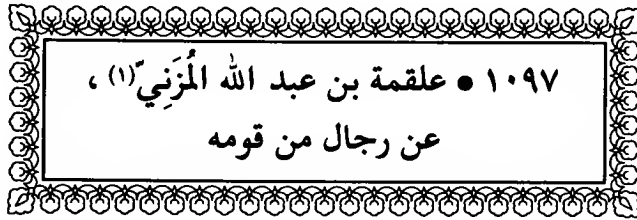 ١٠٩٧ • علقمة بن عبد الله المُزَنِيّ(١) ،
عن رجال من قومه